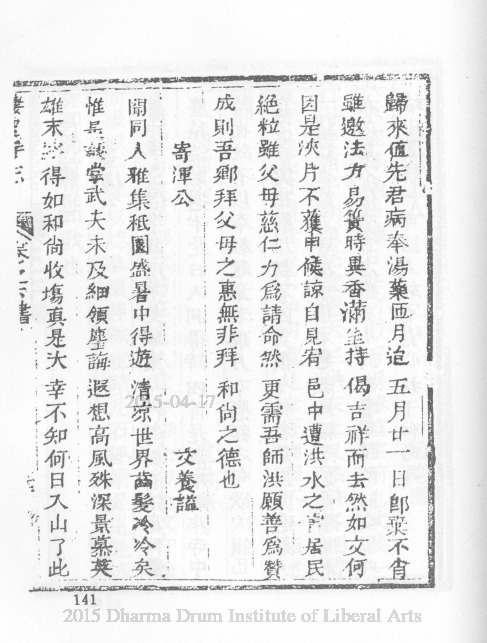 歸來値先君病奉湯藥匝月迨五月廿一日卽棄不肖
雖邀法力易簀時異香滿室持偈吉祥而去然如文何
因是浹片不獲申候諒自見宥邑中遭洪水之 居民
絶粒雖父母慈仁力爲請命然更需吾師洪願善爲贊
成則吾鄉拜父母之惠無非拜和尙之德也
寄渾公
文養謐
聞同人雅集祇園盛暑中得遊清凉世界齒髮冷冷矣
惟是 掌武夫未及細領塵誨遐想高風殊深景慕英
雄末 得如和尙收塲真是大幸不知何日入山了此
2015-04-17
141
2015 Dharma Drum Institute of Liberal Arts